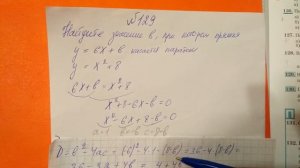 №189
Найдите значение в, при котором прямая
y = 6x + в касается параболы
y = x² + 8
6x + в = x² + 8
x² + 8 - 6x - в = 0
x² - 6x + 8 - в = 0
a = 1 в = -6 c = 8 - в
D = в² - 4ac = (6)² - 4·1·(8-в) = 36 - 4(8-в) =
4 + 4в